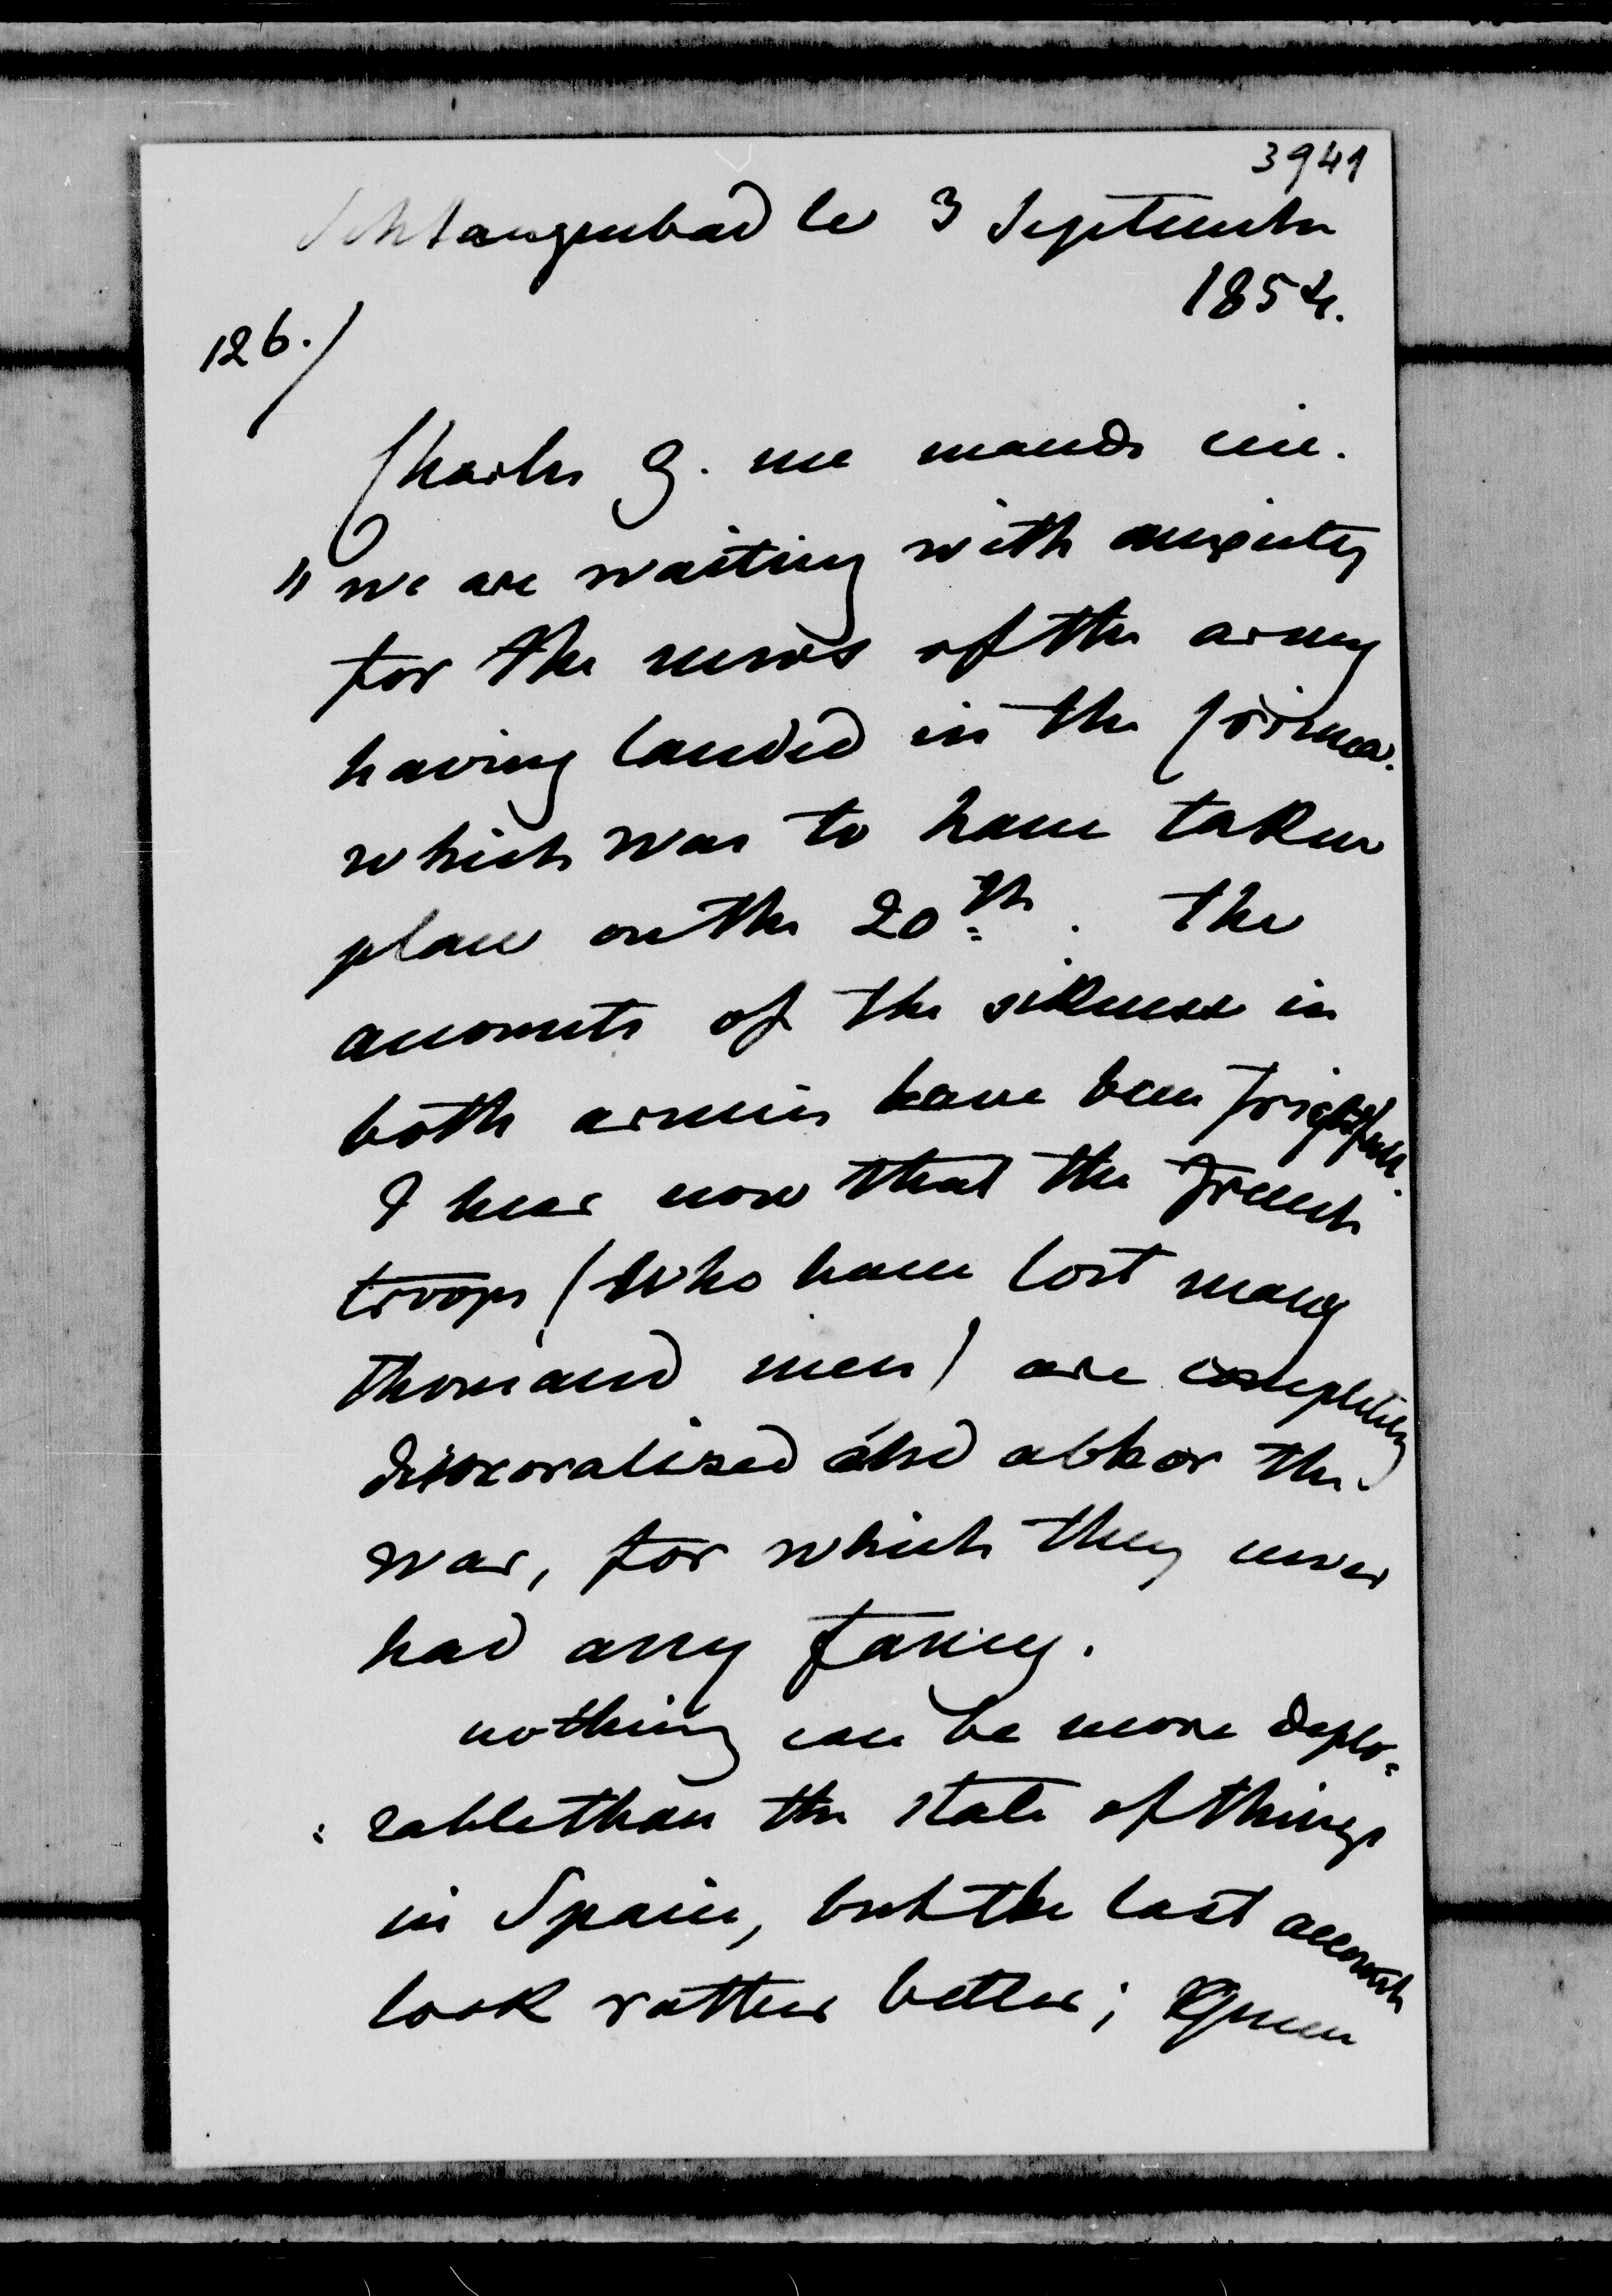 3941
Schlangenbad le 3 Septembre
1854.
126./
Charles G. me mande ceci.
" we are waiting with anxiety
for the news of the army
having landed in the Crimea.
which was to have taken
place on the 20th. The
accounts of the sikness in
both armies have been frightfull.
I hear now that the French
troops (who have lost many
thousand men) are completely
dismoralised and abhor the
war, for which they never
had any fancy.
nothing can be more deplo=
=rable than the state of things
in Spain, but the last accounts
look rather better; Queen